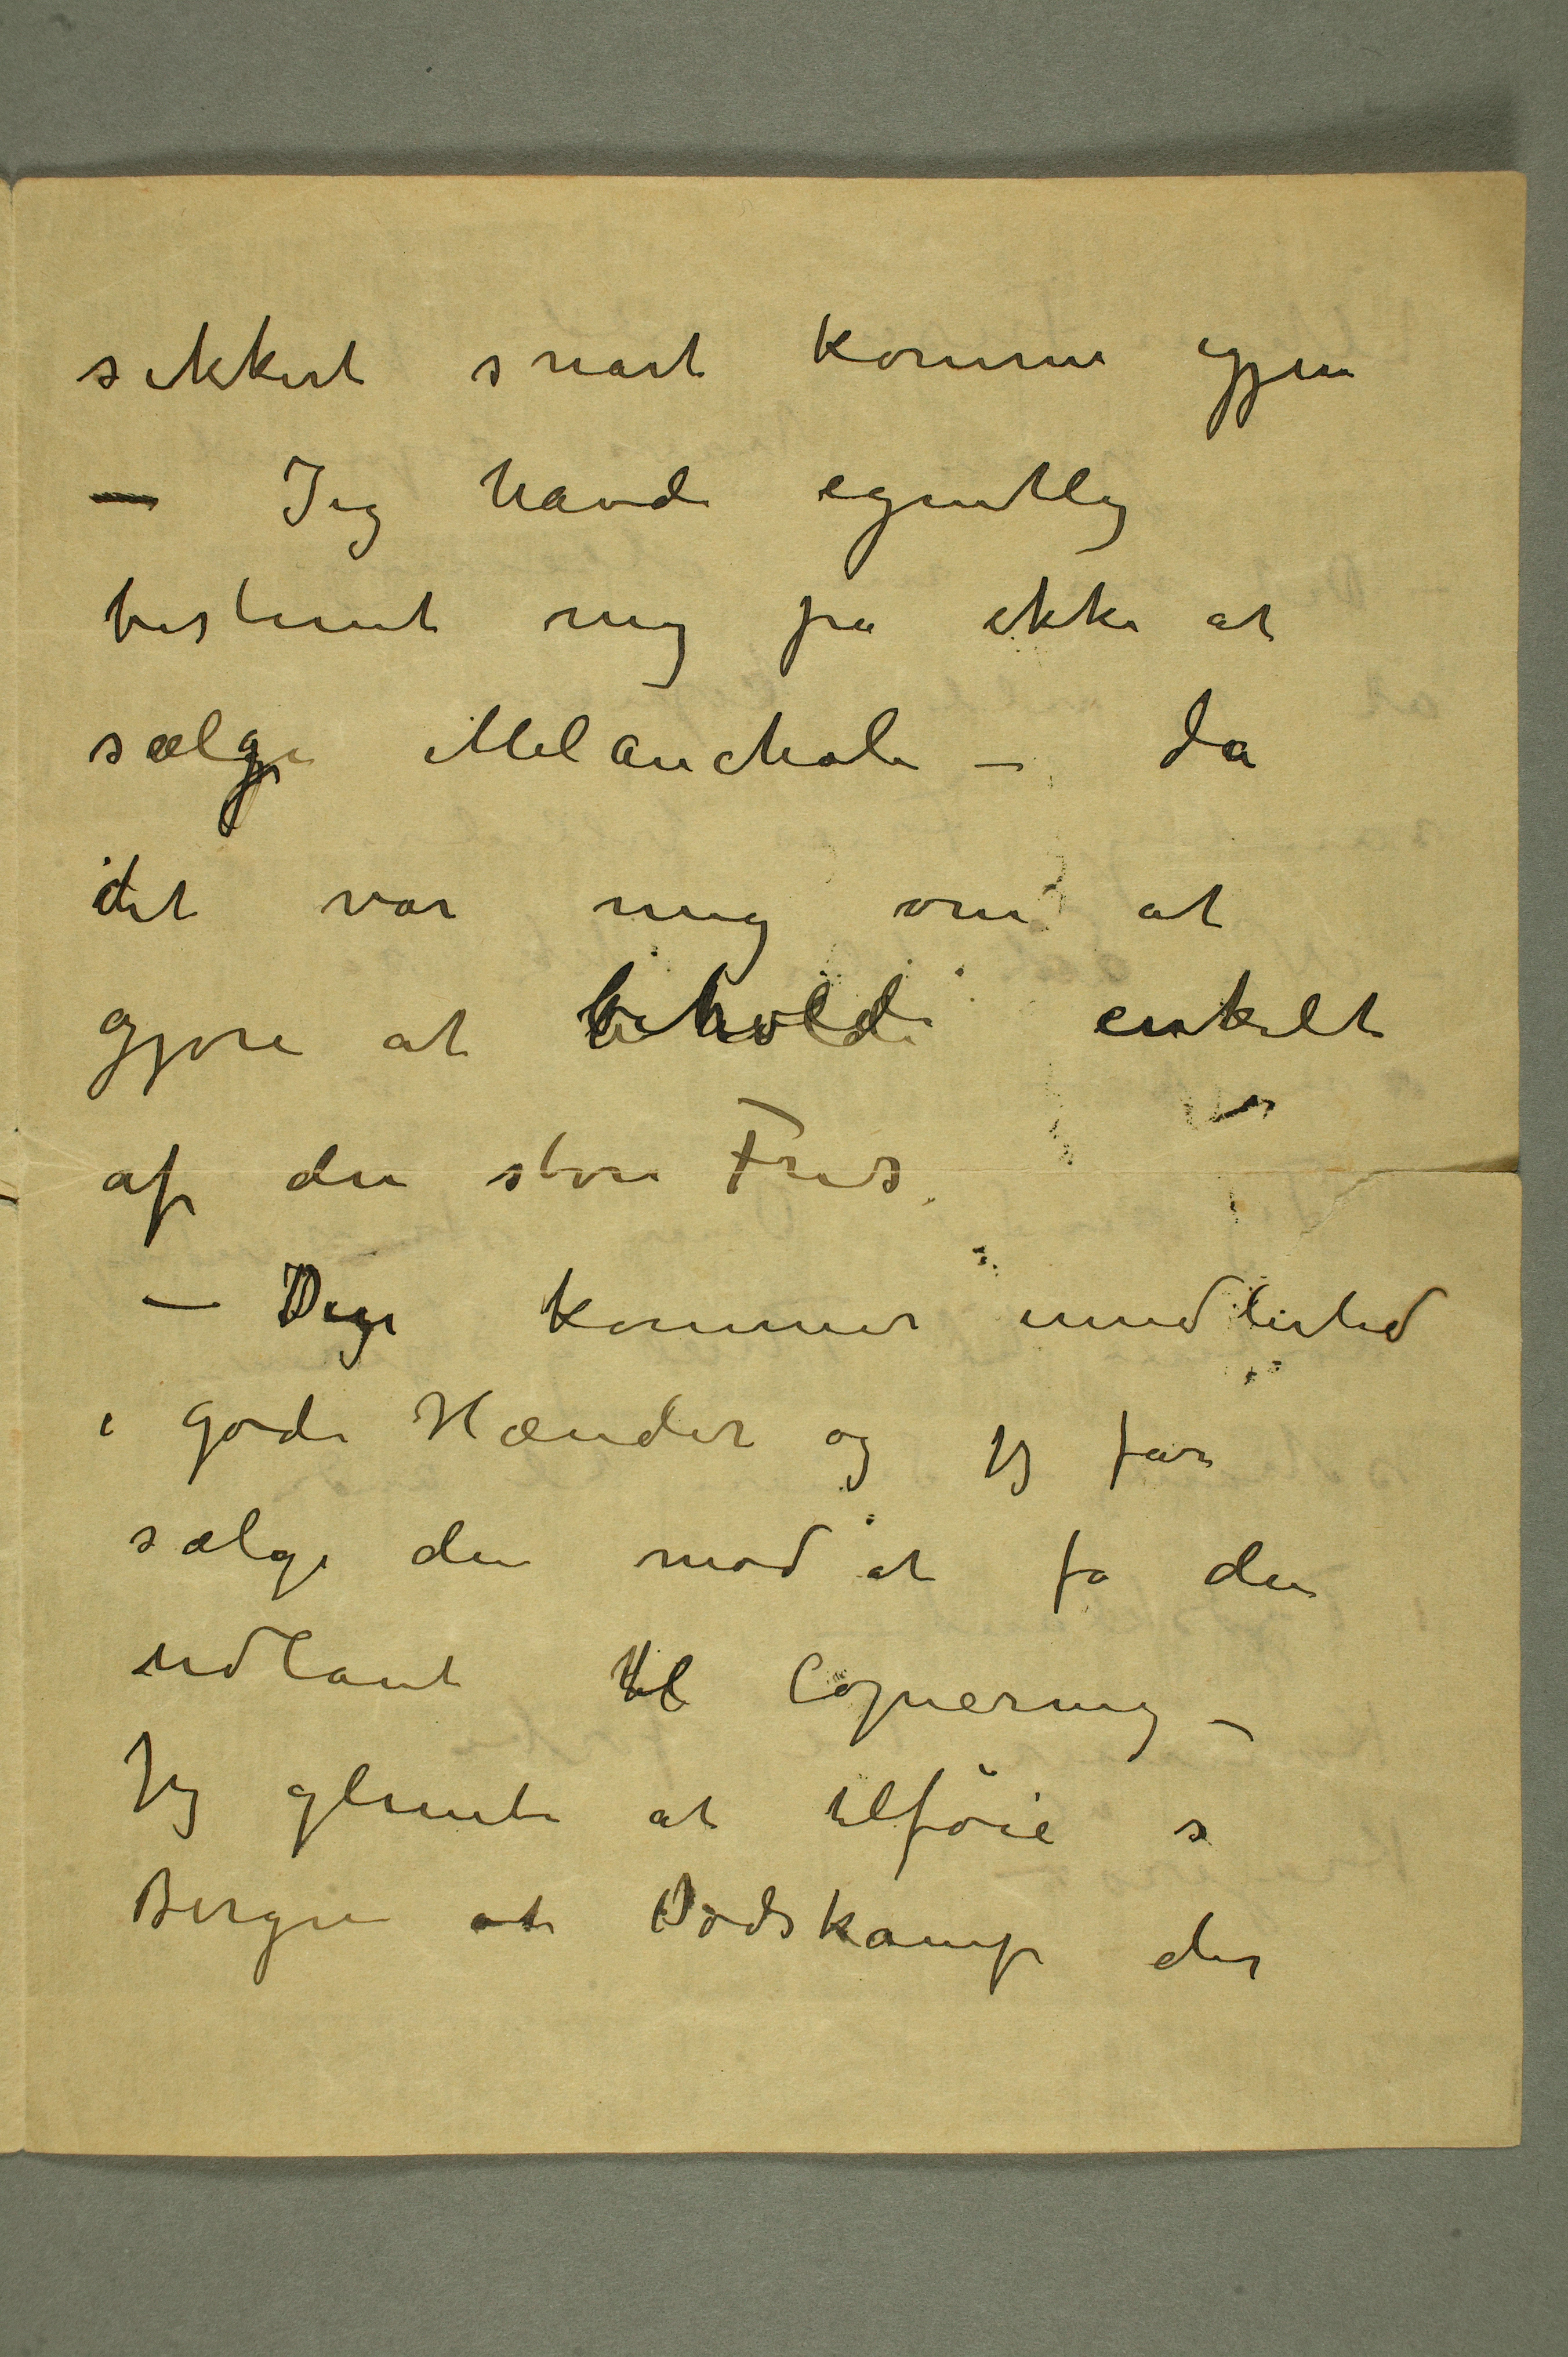 sikkert snart komme igjen
— Jeg havde egentlig
bestemt mig på ikke at
sælge Melancholi – da
det var mig om at
gjøre at beholde enkelt
af den store Fris.
— De kommer imidlertid
i gode Hænder og jeg får
sælge den mod at få den
udlånt til Copiering –
Jeg glemte at tilføie s
Bergen at Dødskamp der